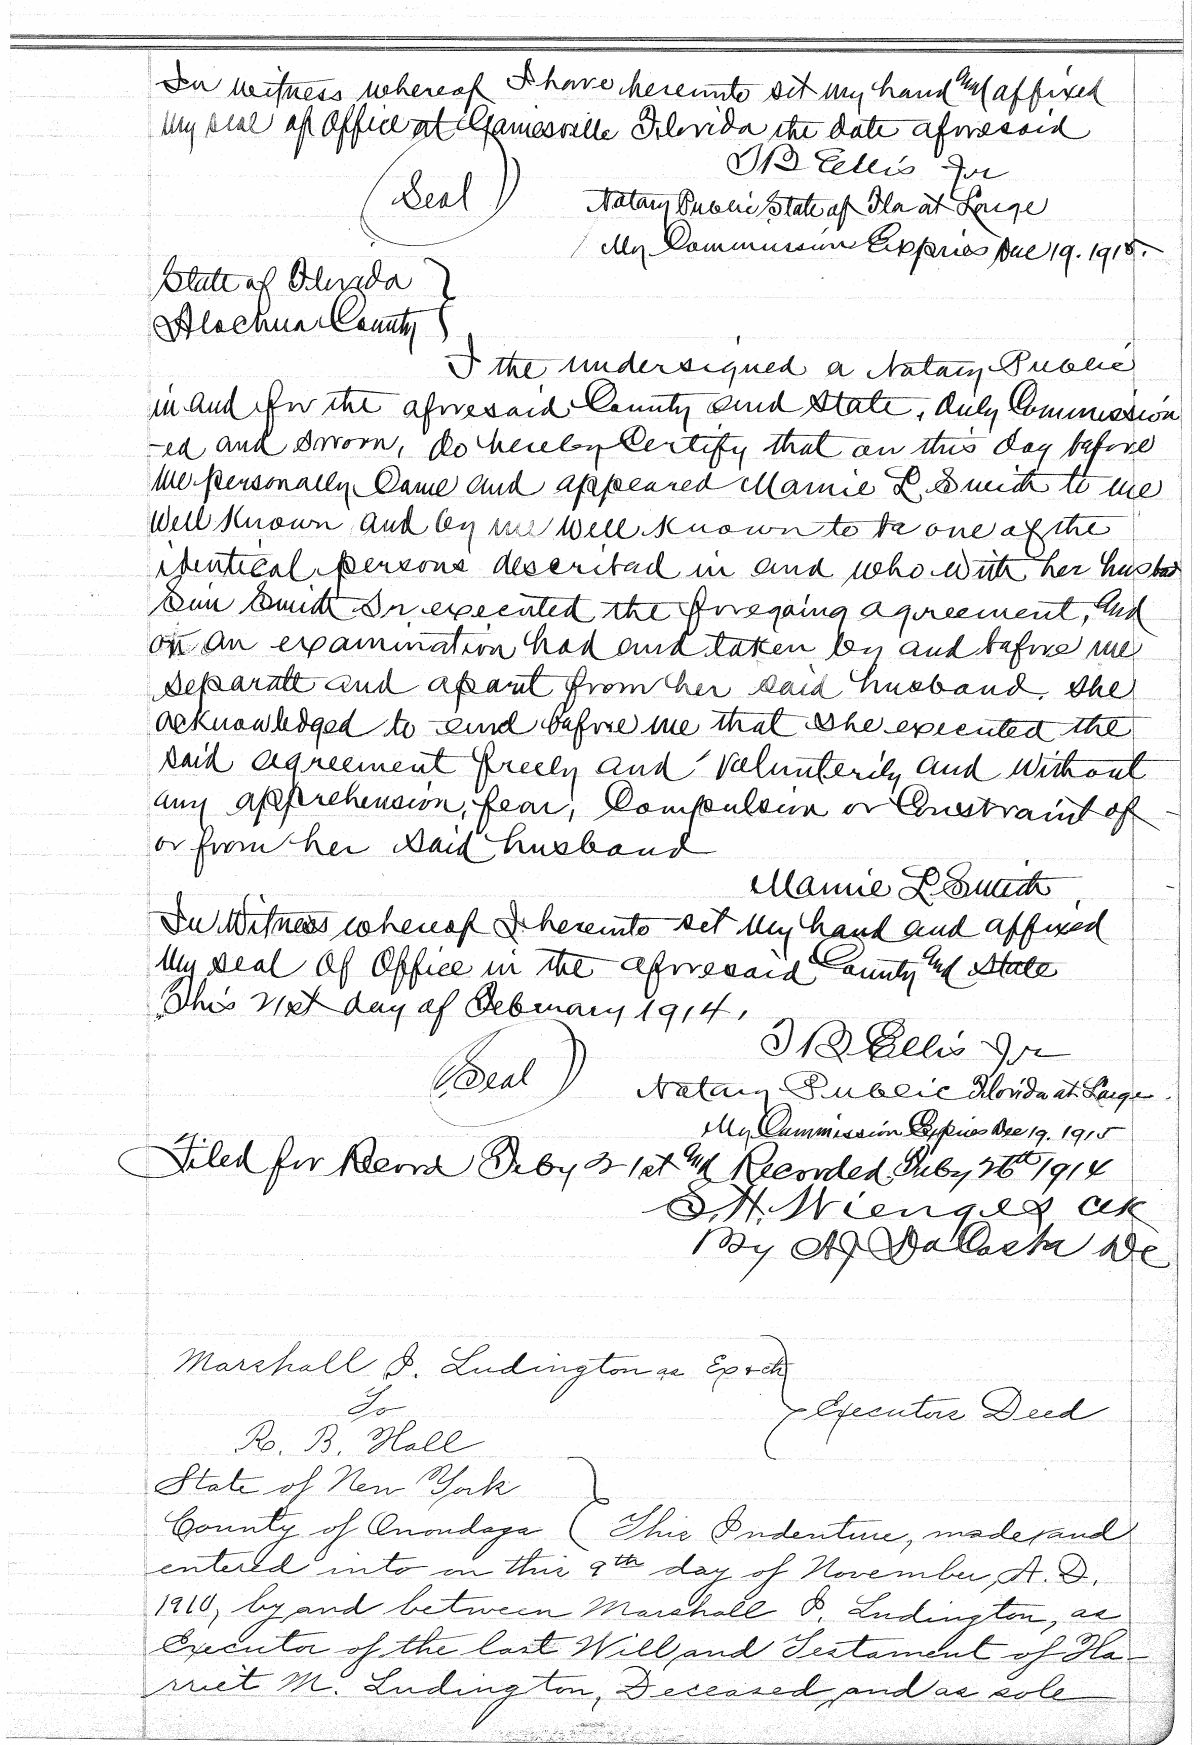 In witness whereof I have hereunto set my hand and affixed
My seal of Office at Gainesville Florida the date aforesaid
T B Ellis Jr
(Seal)
Notary Public State of Fla at Large
My Commission Expires Dec 19. 1915.
State of Florida
Alachua County
I the undersigned a Notary Public
in and for the aforesaid County and State, duly Commission
-ed and sworn, do hereby Certify that on this day before
me personally Came and appeared Mamie L Smith to me
Well Known and by me Well Known to be one of the
identical persons described in and who with her husband
Sim Smith Sr. executed the foregoing agreement, and
on an examination had and taken by and before me
separate and apart from her said husband, she
acknowledged to and before me that she executed the
said agreement freely and volunterily and without
any apprehension, fear, Compulsion or Constraint of
or from her said husband
Mamie L Smith
In Witness whereof I hereinto set My hand and affixed
My seal Of Office in the aforesaid County and State
This 21st day of February 1914.
T B Ellis Jr
(Seal)
Notary Public Florida at Large.
My Commission Expires Dec 19. 1915
Filed for Record Feby 21st and Recorded Feby 26th 1914
S. H. Wienges Clk
By A J DaCosta DC
Marshall I. Ludington as Ex
To
Executors Deed
R. B. Hall
State of New York
County of Onondaga This Indenture, made and
entered into on this 9th day of November, A. D.
1910, by and between Marshall I. Ludington, as
Executor of the last Will and Testament of Ha-
rriet M. Ludington, Deceased, and as sole